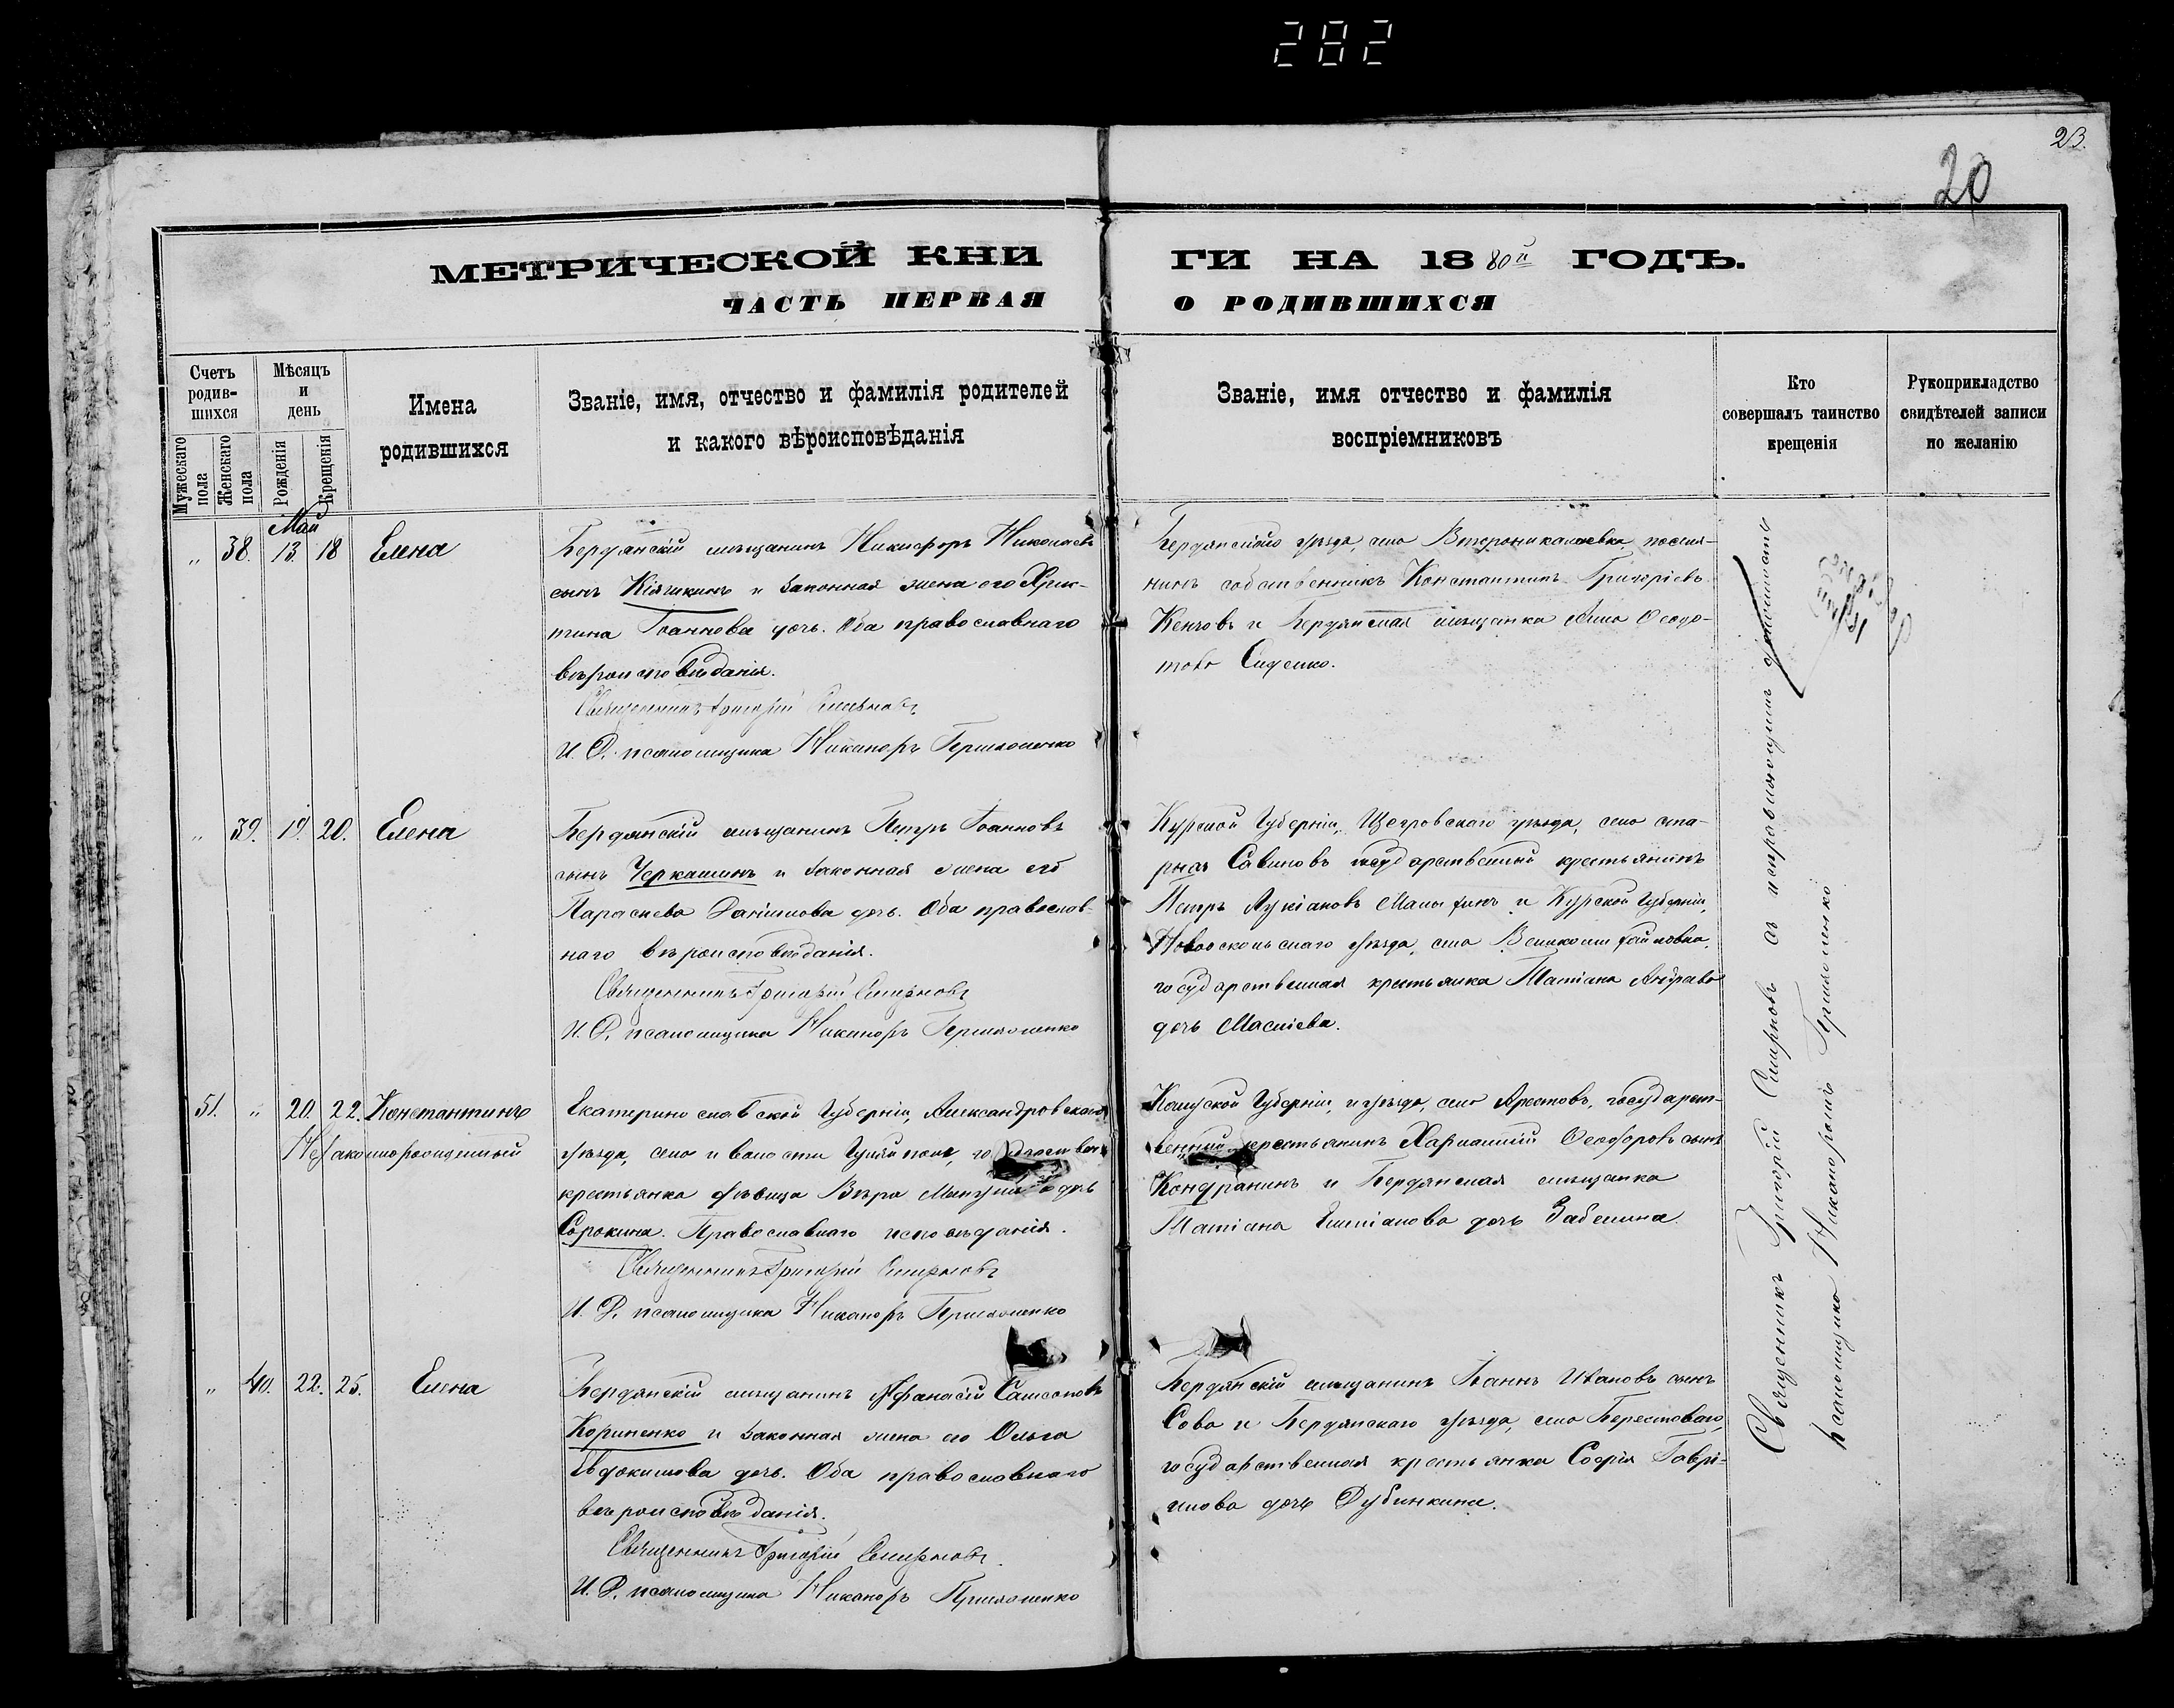 282
23.
20
МЕТРИЧЕСКОЙ КНИ
ГИ НА 1880й ГОДЪ.
ЧАСТЬ ПЕРВАЯ
О РОДИВШИХСЯ
Счетъ родив-шихся
Мужескаго пола
Женскаго пола
Мѣсяцъ и день
Рожденія
Крещенія
Имена родившихся
Званіе, имя, отчество и фамилія родителей
и какого вѣроисповѣданія
Званіе, имя отчество и фамилія
воспріемниковъ
Кто
совершалъ таинство
крещенія
Рукоприкладство
свидѣтелей записи
по желанію
Май
„ 38. 13. 18 Елена
Бердянскій мѣщанинъ Никифоръ Николаевъ
сынъ Кіяшкинъ и законная жена его Хрис-
тина Іоаннова дочь. Оба православнаго
вѣроисповѣданія.
Священникъ Григорій Смирновъ
И. Д. псаломщика Никаноръ
Бердянскаго уѣзда, села поселя-
нинъ собственникъ Константинъ Григоріевъ
и Бердянская мѣщанка Анна Ѳеодо-
това
„ 39. 19. 20. Елена
Бердянскій мѣщанинъ Петръ Іоанновъ
сынъ Черкашинъ и законная жена его
Параскева Даніилова дочь. Оба православ-
наго вѣроисповѣданія.
Священникъ Григорій Смирновъ
И. Д. псаломщика Никаноръ
Курской Губерніи, Щигровскаго уѣзда, села ста-
рыхъ Савиновъ государственный крестьянинъ
Петръ Лукіановъ и Курской Губерніи,
Новооскольскаго уѣзда, села
государственная крестьянка Татіана
дочь Маслѣева.
51. „ 20. 22. Константинъ
Незаконнорожденный
Екатеринославской Губерніи, Александровскаго
уѣзда, села и волости Гуляйполе,
крестьянка дѣвица Вѣра дочь
Сорокина. Православнаго исповѣданія.
Священникъ Григорій Смирновъ
И. Д. псаломщика Никаноръ
Калужской Губерніи, и уѣзда, села государст-
венный крестьянинъ Харлампій Ѳеодоровъ сынъ
Кондранинъ и Бердянская мѣщанка
Татіана дочь Забелина.
„ 40. 22. 25. Елена
Бердянскій мѣщанинъ Афанасій Самсоновъ
Корниенко и законная жена его Ольга
Евдокимова дочь. Оба православнаго
вѣроисповѣданія.
Священникъ Григорій Смирновъ.
И. Д. псаломщика Никаноръ
Бердянскій мѣщанинъ Іоаннъ Ивановъ сынъ
Сова и Бердянскаго уѣзда, села Берестоваго,
государственная крестьянка Софія Гаврі-
илова дочь Дубинкина.
Священникъ Григорій Смирновъ съ исправляющимъ должность
псаломщика Никаноромъ